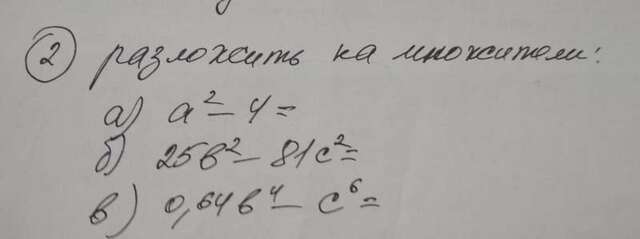 2 разложить на множители:
а) a² - 4 =
б) 25b² - 81c² =
в) 0,64b⁴ - c⁶ =